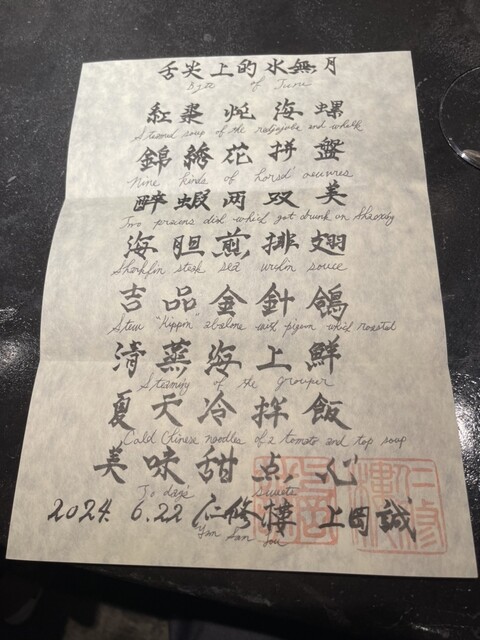 舌尖上的水無月
Byte of Juni
紅棗炖海螺
Steamed soup of the redjujube and whelk
錦綉花拼盤
Nine kinds of horsd' oeuvres
醉蝦両双美
Two prawns dish which got drunk on Shaoxing
海胆煎排翅
Sharkfin steak sea urchin souce
吉品金針鴿
Stew "Kippin" abalone with pigeon which roasted
清蒸海上鮮
Steaming of the grouper
夏天冷拌飯
Cold Chinese noodles of a tomato and top soup
美味甜点心
To day's sweets
2024. 6.22 仁修樓 上岡誠
Yan Sau Lou
仁修樓